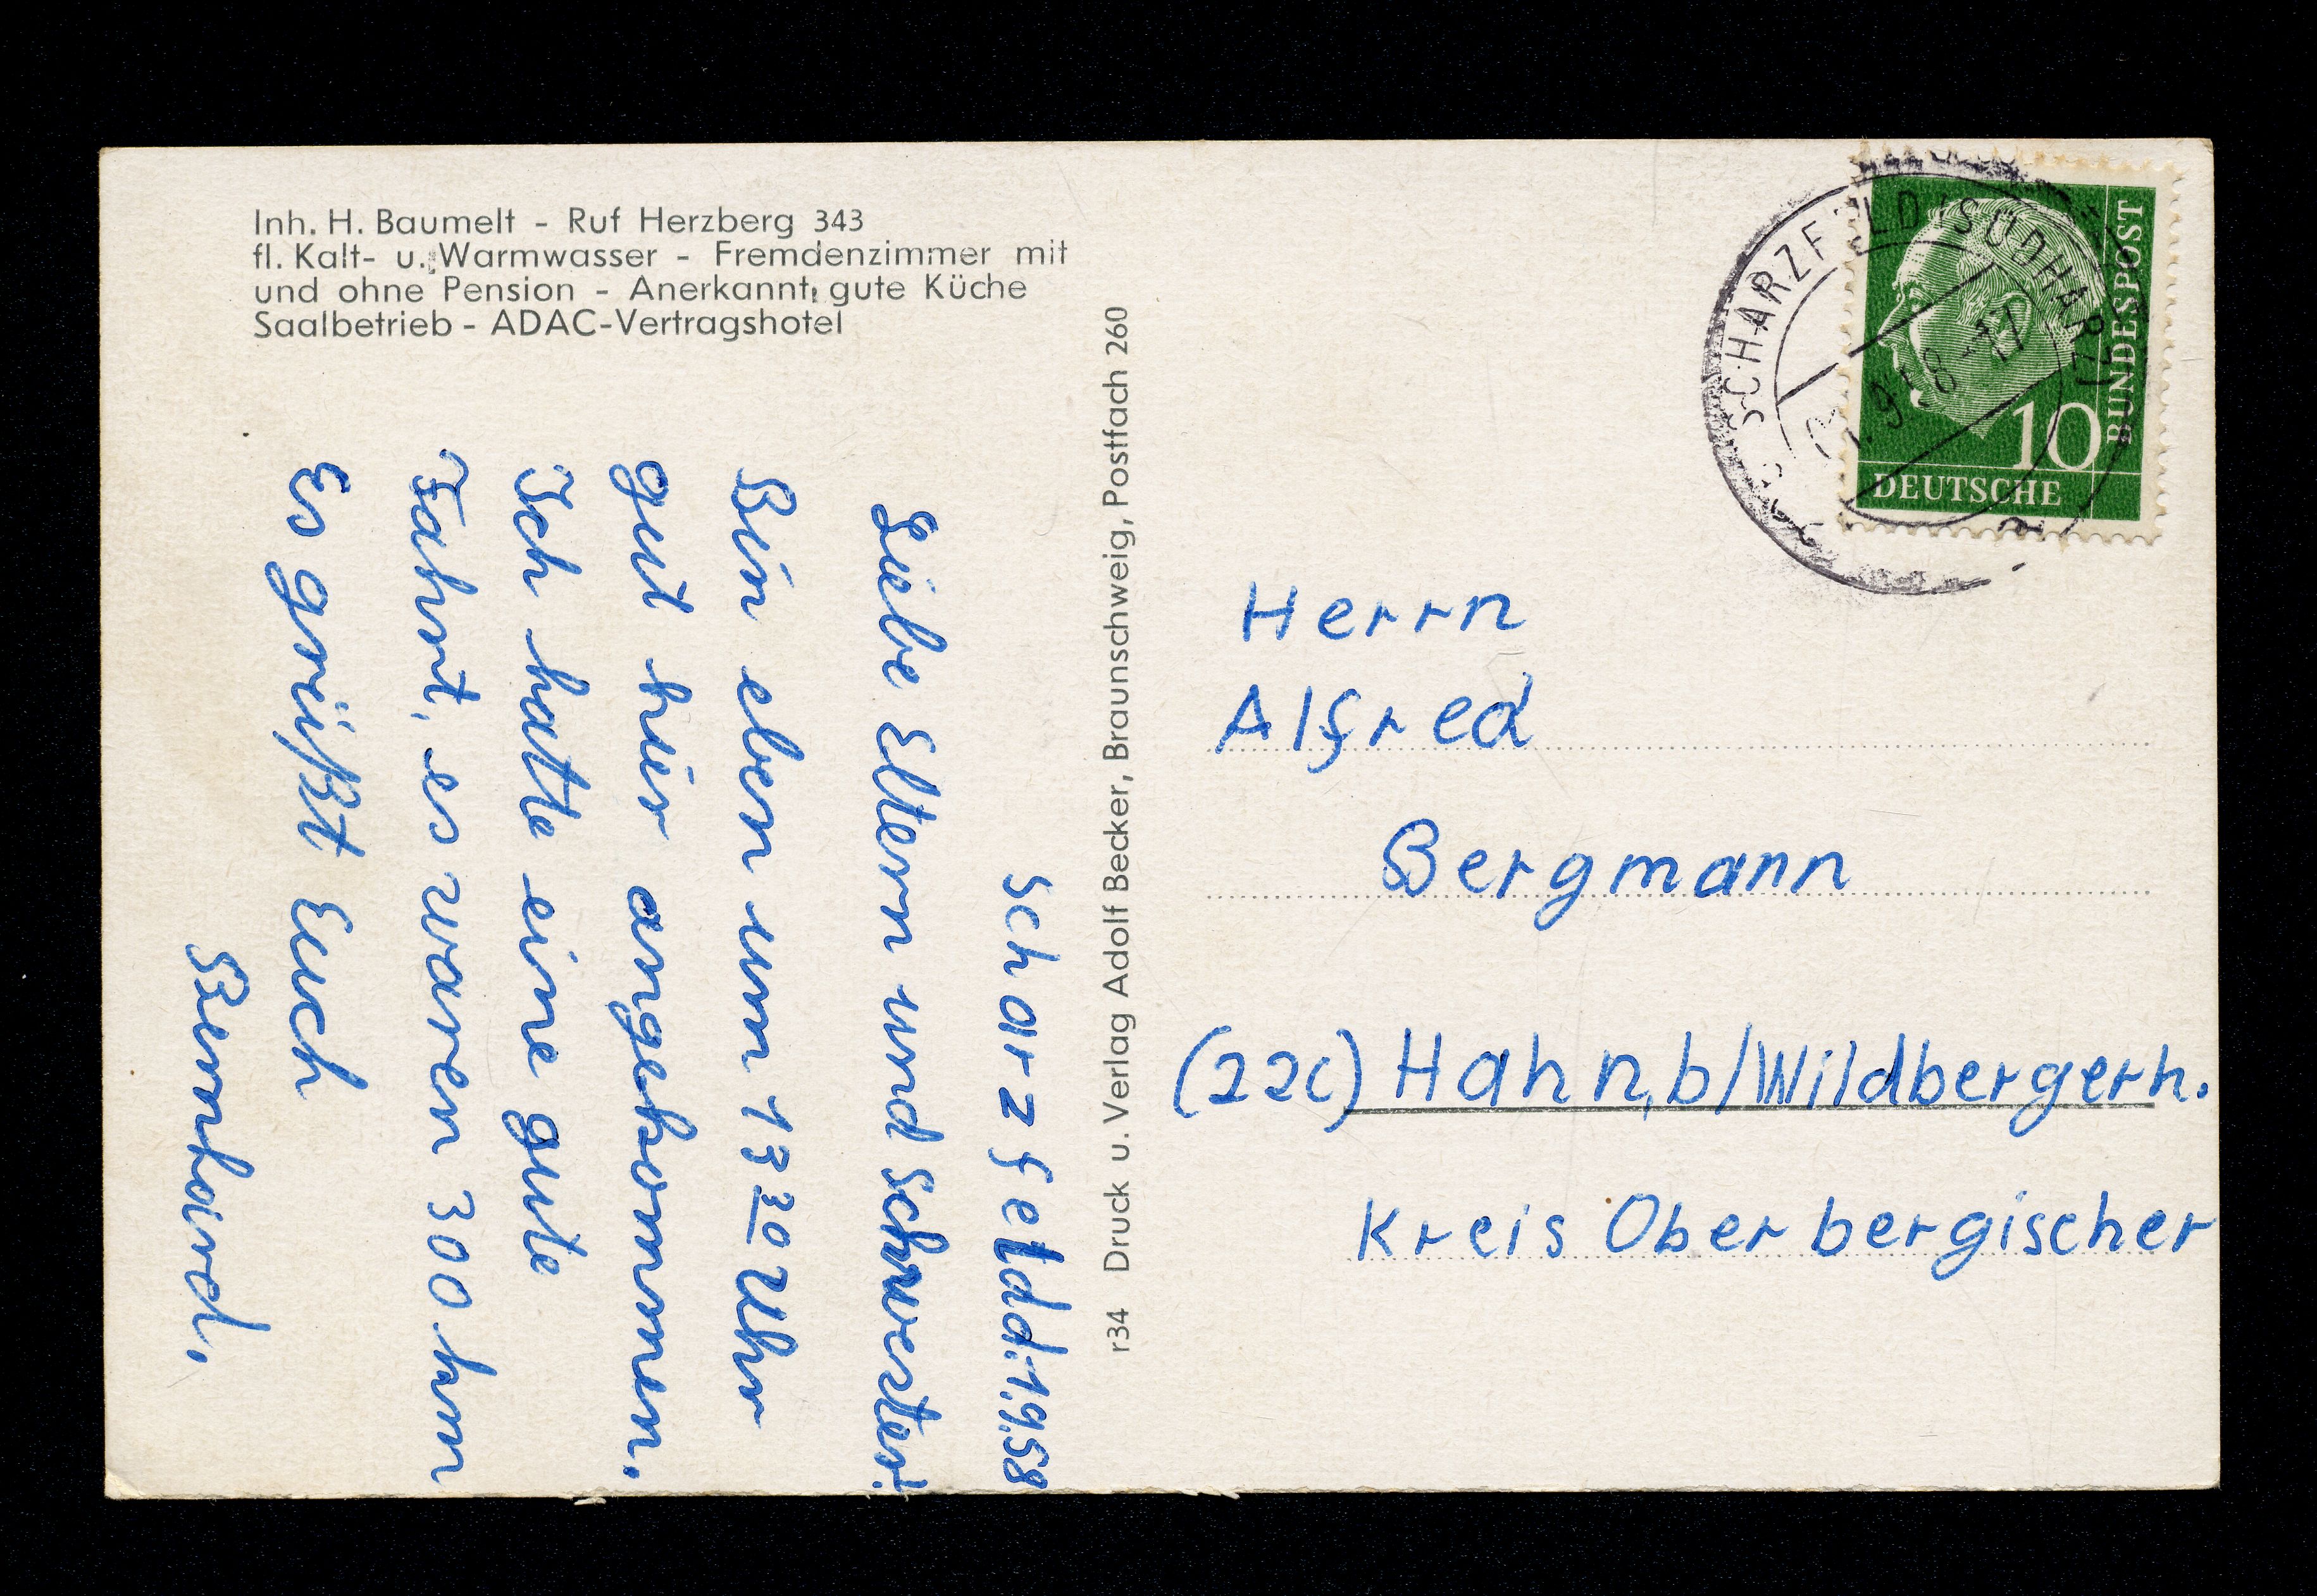 Inh. H. Baumelt - Ruf Herzberg 343
fl. Kalt- u. Warmwasser - Fremdenzimmer mit
und ohne Pension - Anerkannt gute Küche
Saalbetrieb - ADAC-Vertragshotel
Scharzfeld d. 1.9.58
Liebe Eltern und Schwester!
Bin eben um 13 30 Uhr
gut hier angekommen.
Ich hatte eine gute
Fahrt, es waren 300 km
Es grüßt Euch
Bernhard.
r34 Druck u. Verlag Adolf Becker, Braunschweig, Postfach 260
SCHARZFELD (SÜDHARZ)
9.58-17
BUNDESPOST
10
DEUTSCHE
Herrn
Alfred
Bergmann
(22c) Hahn, b/Wildbergerh.
Kreis Oberbergischer